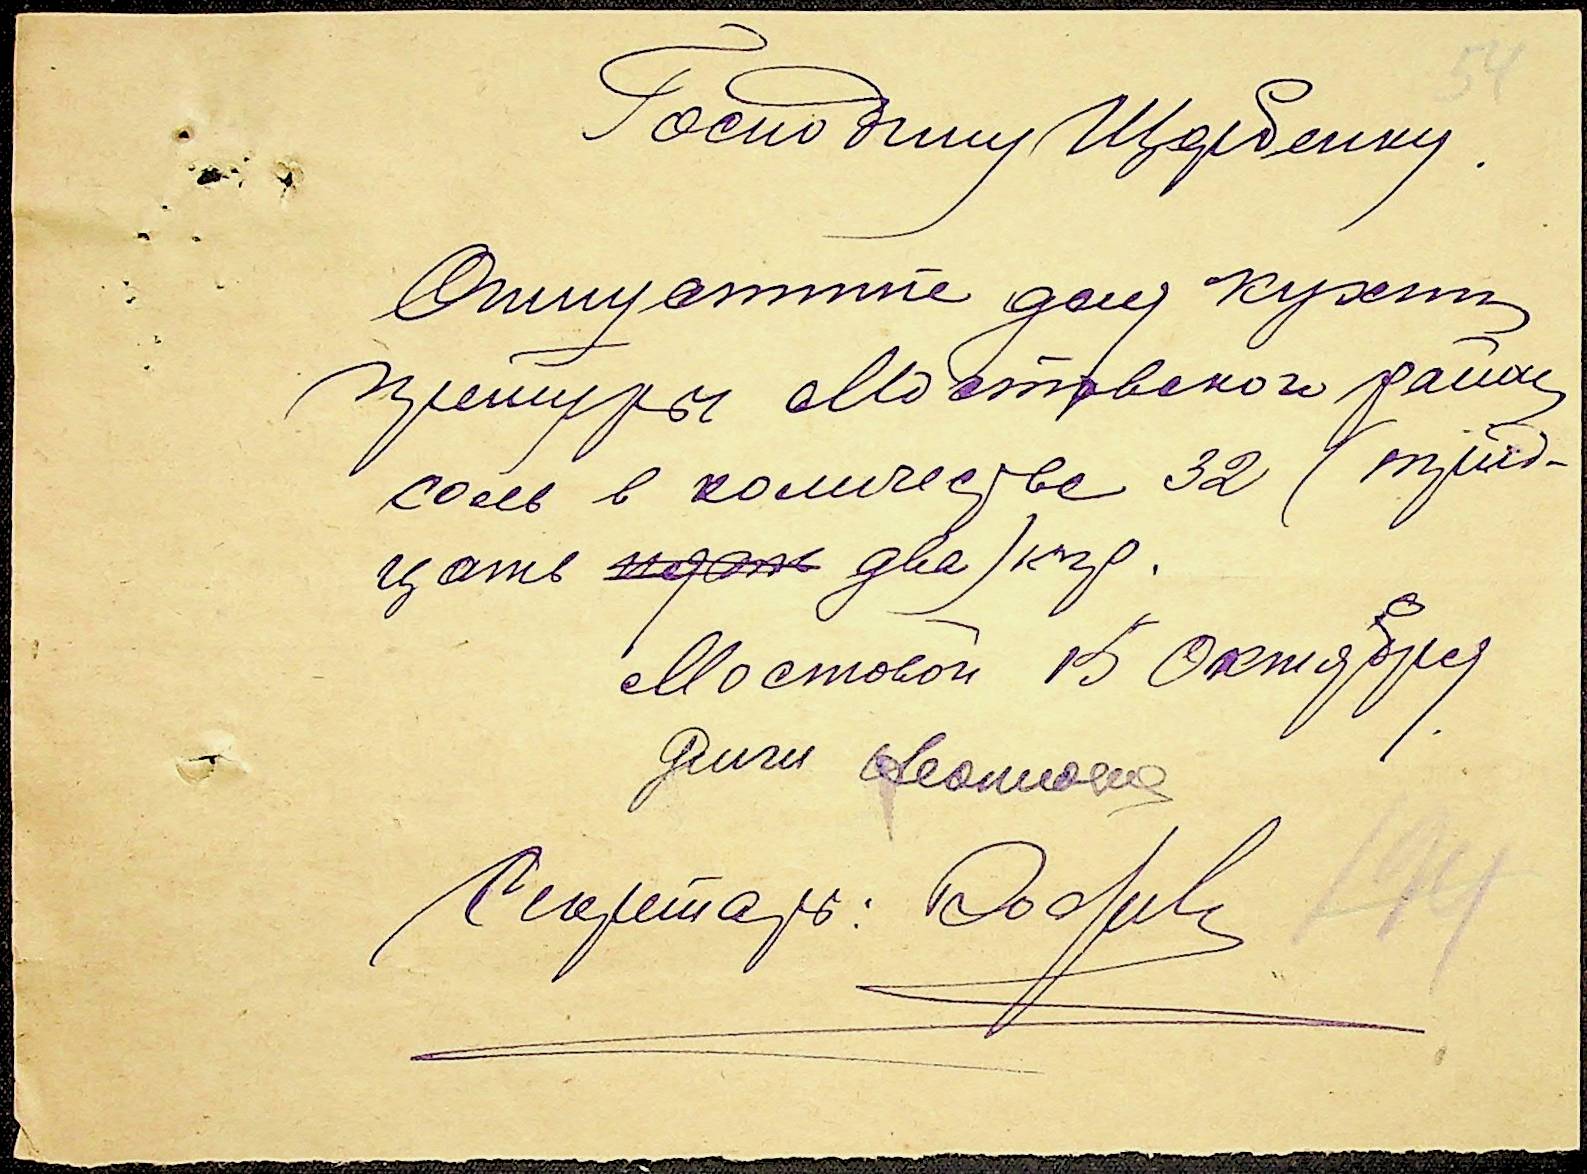 54
Господину Щербенку.
Отпустите для кухни
претуры Мостовского района
соль в количестве 32 (трид-
цать два) кгр.
Мостовой 15 Октября
Секретарь: